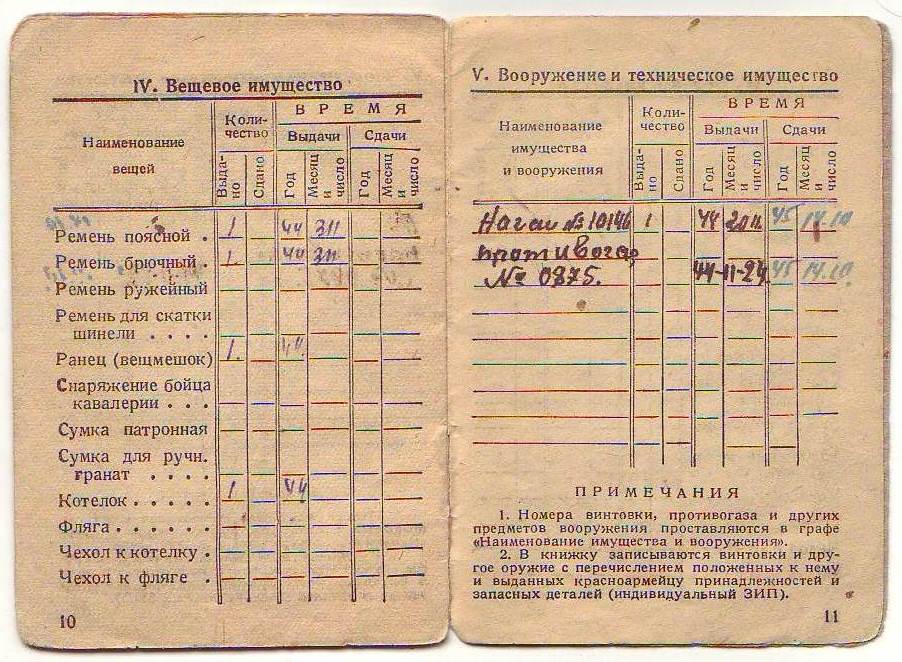 IV. Вещевое имущество
Наименование вещей
Коли-
чество
ВРЕМЯ
Выдачи
Сдачи
Выда-
но
Сдано
Год
Месяц
и
число
Год
Месяц
и
число
Ремень поясной . 1 44 3 11
Ремень брючный . 1 44 3 11
Ремень ружейный
Ремень для скатки
шинели . . . .
Ранец (вещмешок) 1. 44
Снаряжение бойца
кавалерии . . .
Сумка патронная
Сумка для ручн.
гранат . . . .
Котелок . . . . . 1 44
Фляга . . . . . .
Чехол к котелку .
Чехол к фляге .
10
V. Вооружение и техническое имущество
Наименование
имущества
и вооружения
Коли-
чество
ВРЕМЯ
Выдачи
Сдачи
Выда-
но
Сдано
Год
Месяц
и
число
Год
Месяц
и
число
Наган № 10146 1 44 45 14.10
противогаз
№ 0875. 44-11-24 45 14.10
ПРИМЕЧАНИЯ
1. Номера винтовки, противогаза и других
предметов вооружения проставляются в графе
«Наименование имущества и вооружения».
2. В книжку записываются винтовки и дру-
гое оружие с перечислением положенных к нему
и выданных красноармейцу принадлежностей и
запасных деталей (индивидуальный ЗИП).
11